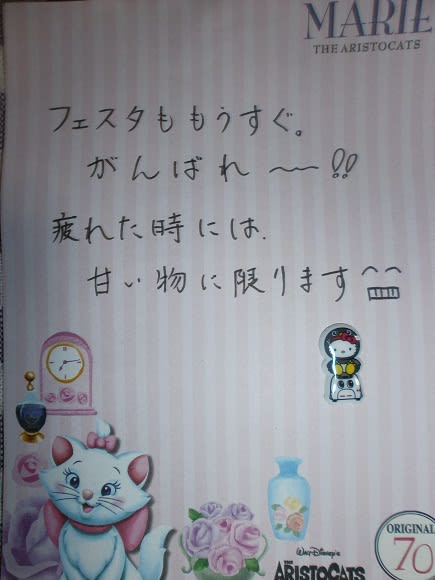 MARIE
THE ARISTOCATS
フェスタももうすぐ。
がんばれ〜!!
疲れた時には、
甘い物に限ります^^
Walt Disney's
THE ARISTOCATS
ORIGINAL
70